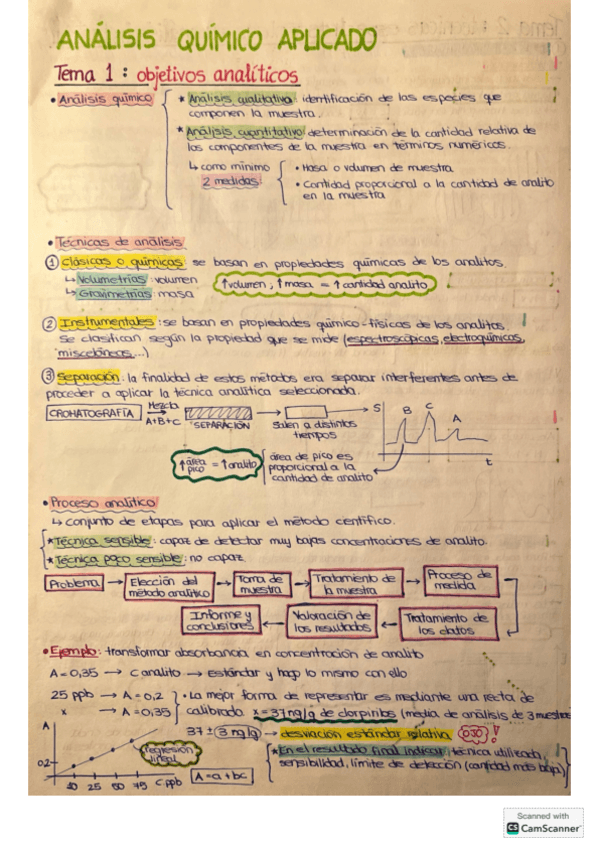 ANÁLISIS QUÍMICO APLICADO
Tema 1: objetivos analíticos
• Análisis químico
* Análisis cualitativo: identificación de las especies que
componen la muestra.
* Análisis cuantitativo: determinación de la cantidad relativa de
los componentes de la muestra en términos numéricos.
↳ como mínimo
2 medidas:
• Masa o volumen de muestra
• Cantidad proporcional a la cantidad de analito
en la muestra
• Técnicas de análisis
① Clásicas o químicas: se basan en propiedades químicas de los analitos.
↳ Volumetrías: volumen
↳ Gravimetrías: masa
↑volumen, ↑masa = ↑cantidad analito
② Instrumentales: se basan en propiedades químico-físicas de los analitos.
Se clasifican según la propiedad que se mide (espectroscópicas, electroquímicas,
misceláneas...)
③ Separación: la finalidad de estos métodos era separar interferentes antes de
proceder a aplicar la técnica analítica seleccionada.
CROMATOGRAFÍA
Mezcla
A+B+C
SEPARACIÓN
Salen a distintos
tiempos
S
B
C
A
t
↑área
pico = ↑analito
área de pico es
proporcional a la
cantidad de analito
• Proceso analítico
↳ conjunto de etapas para aplicar el método científico.
* Técnica sensible: capaz de detectar muy bajas concentraciones de analito.
* Técnica poco sensible: no capaz
Problema → Elección del
método analítico → Toma de
muestra → Tratamiento de
la muestra → Proceso de
medida
Informe y
conclusiones ← Valoración de
los resultados ← Tratamiento de
los datos
• Ejemplo: transformar absorbancia en concentración de analito
A=0,35 → C analito → estándar y hago lo mismo con ello
25 ppb → A=0,2
x → A=0,35
• La mejor forma de representar es mediante una recta de
calibrado. x=37 ng/g de clorpirifos (media de análisis de 3 muestras
37±(3 ng/g) → desviación estándar relativa OJO!
* En el resultado final indicar: técnica utilizada,
sensibilidad, límite de detección (cantidad más baja)
A
0.2
10 25 50 75 C.ppb
regresión
lineal
A=a+bc
Scanned with
CS CamScanner